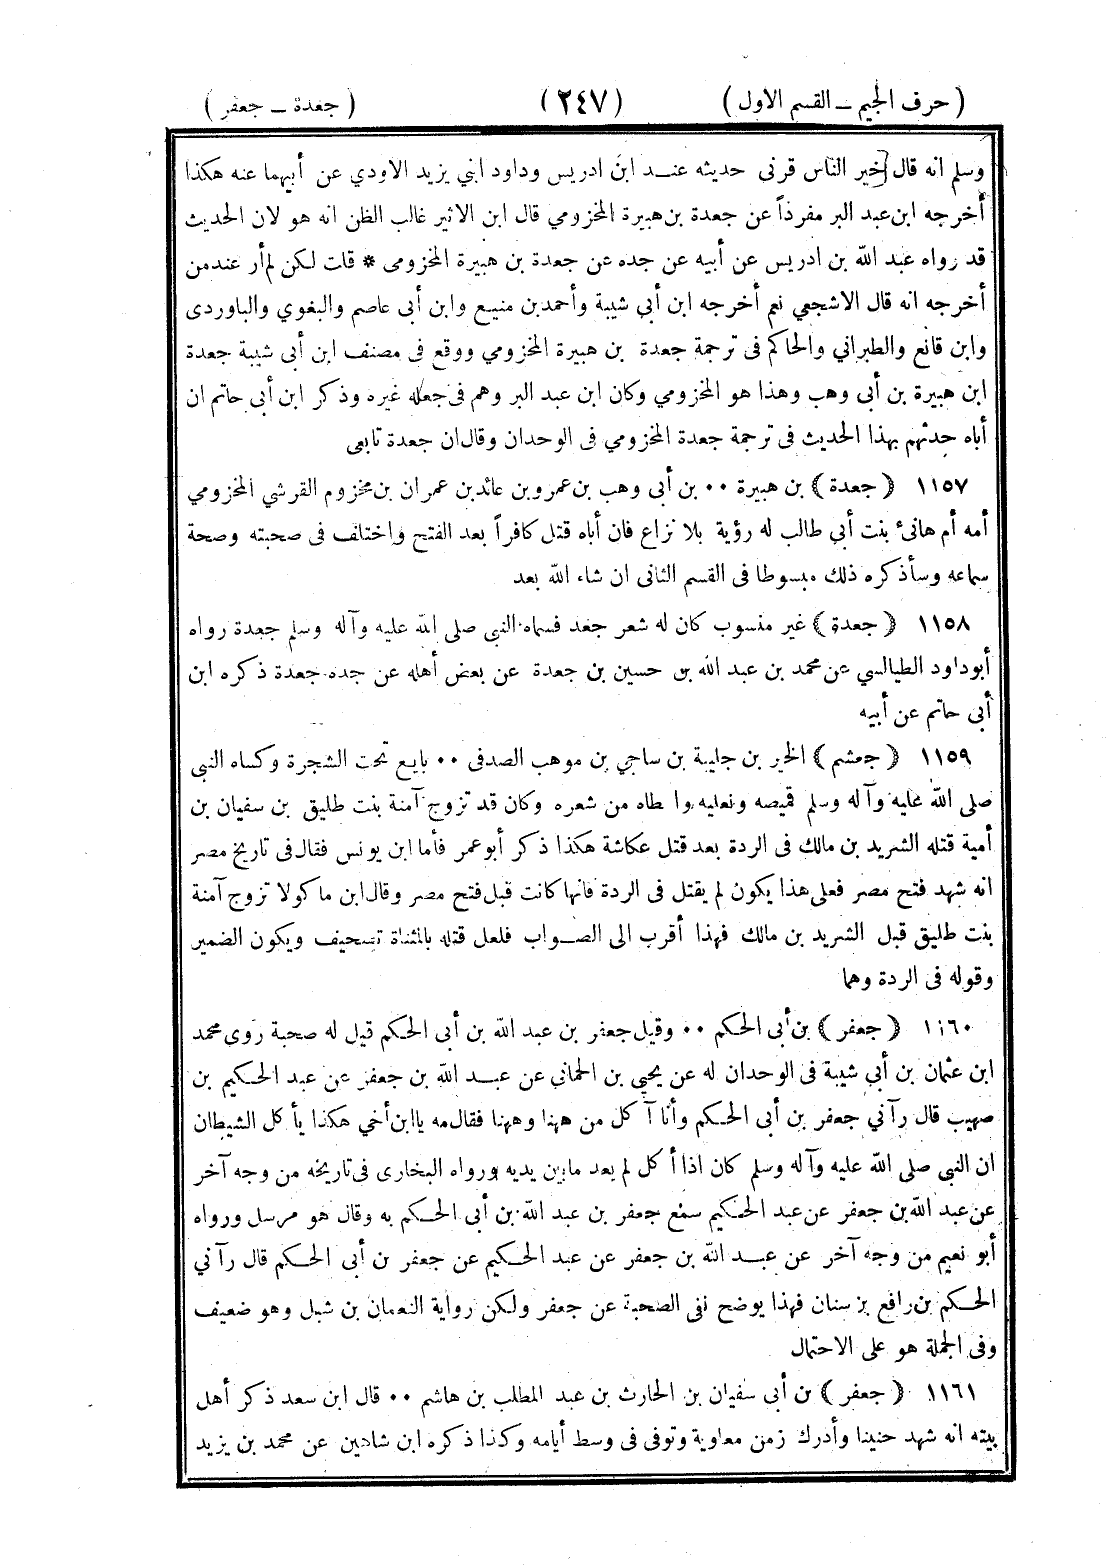 ( حرف الجيم ــ القسم الاول ) ( ٢٤٧ ) ( جعدة ــ جعفر )
وسلم انه قال خير الناس قرنى حديثه عنـــد ابن ادريس وداود ابني يزيد الاودي عن أبيهما عنه هكذا
أخرجه ابن عبد البر مفرداً عن جعدة بن هبيرة المخزومي قال ابن الاثير غالب الظن انه هو لان الحديث
قد رواه عبد الله بن ادريس عن أبيه عن جده عن جعدة بن هبيرة المخزومى * قات لكن لم أر عند من
أخرجه انه قال الاشجعي نعم أخرجه ابن أبي شيبة وأحمد بن منيع وابن أبى عاصم والبغوي والباوردى
وابن قانع والطبراني والحاكم فى ترجمة جعدة بن هبيرة المخزومي ووقع فى مصنف ابن أبى شيبة جعدة
ابن هبيرة بن أبى وهب وهذا هو المخزومي وكان ابن عبد البر وهم فى جعله غيره وذكر ابن أبى حاتم ان
أباه حدثهم بهذا الحديث فى ترجمة جعدة المخزومي فى الوحدان وقال ان جعدة تابعى
١١٥٧ ( جعدة ) بن هبيرة ٠٠ بن أبى وهب بن عمرو بن عائد بن عمران بن مخزوم القرشي المخزومي
أمه أم هانئ بنت أبي طالب له رؤية بلا نزاع فان أباه قتل كافراً بعد الفتح واختلف فى صحبته وصحة
سماعه وسأذكره ذلك مبسوطا فى القسم الثانى ان شاء الله بعد
١١٥٨ ( جعدة ) غير منسوب كان له شعر جعد فسماه النبي صلى الله عليه وآله وسلم جعدة رواه
أبو داود الطيالسي عن محمد بن عبد الله بن حسين بن جعدة عن بعض أهله عن جده جعدة ذكره ابن
أبى حاتم عن أبيه
١١٥٩ ( جعشم ) الخير بن جليبة بن ساجي بن موهب الصدفى ٠٠ بايع تحت الشجرة وكساه النبى
صلى الله عليه وآله وسلم قميصه ونعليه وا طاه من شعره وكان قد تزوج آمنة بنت طليق بن سفيان بن
أمية قتله الشريد بن مالك فى الردة بعد قتل عكاشة هكذا ذكر أبو عمر فأما ابن يونس فقال فى تاريخ مصر
انه شهد فتح مصر فعلى هذا يكون لم يقتل فى الردة فانها كانت قبل فتح مصر وقال ابن ماكولا تزوج آمنة
بنت طليق قبل الشريد بن مالك فهذا أقرب الى الصــواب فلعل قتله بالمثناة تصحيف ويكون الضمير
وقوله فى الردة وهما
١١٦٠ ( جعفر ) بن أبى الحكم ٠٠ وقيل جعفر بن عبد الله بن أبى الحكم قيل له صحبة روى محمد
ابن عثمان بن أبى شيبة فى الوحدان له عن يحيى بن الحمانى عن عبــد الله بن جعفر عن عبد الحـكيم بن
صهيب قال رآني جعفر بن أبى الحكم وأنا آكل من ههنا وههنا فقال مه يا ابن أخي هكذا يأكل الشيطان
ان النبي صلى الله عليه وآله وسلم كان اذا أكل لم يعد ما بين يديه ورواه البخارى فى تاريخه من وجه آخر
عن عبد الله بن جعفر عن عبد الحكيم سمع جعفر بن عبد الله بن أبى الحكم به وقال هو مرسل ورواه
أبو نعيم من وجه آخر عن عبــد الله بن جعفر عن عبد الحـكيم عن جعفر بن أبى الحكم قال رآني
الحكم بن رافع بن سنان فهذا يوضح نفى الصحبة عن جعفر ولكن رواية النعمان بن شبل وهو ضعيف
وفى الجملة هو على الاحتمال
١١٦١ ( جعفر ) بن أبى سفيان بن الحارث بن عبد المطلب بن هاشم ٠٠ قال ابن سعد ذكر أهل
بيته انه شهد حنينا وأدرك زمن معاوية وتوفى فى وسط أيامه وكذا ذكره ابن شاهين عن محمد بن يزيد